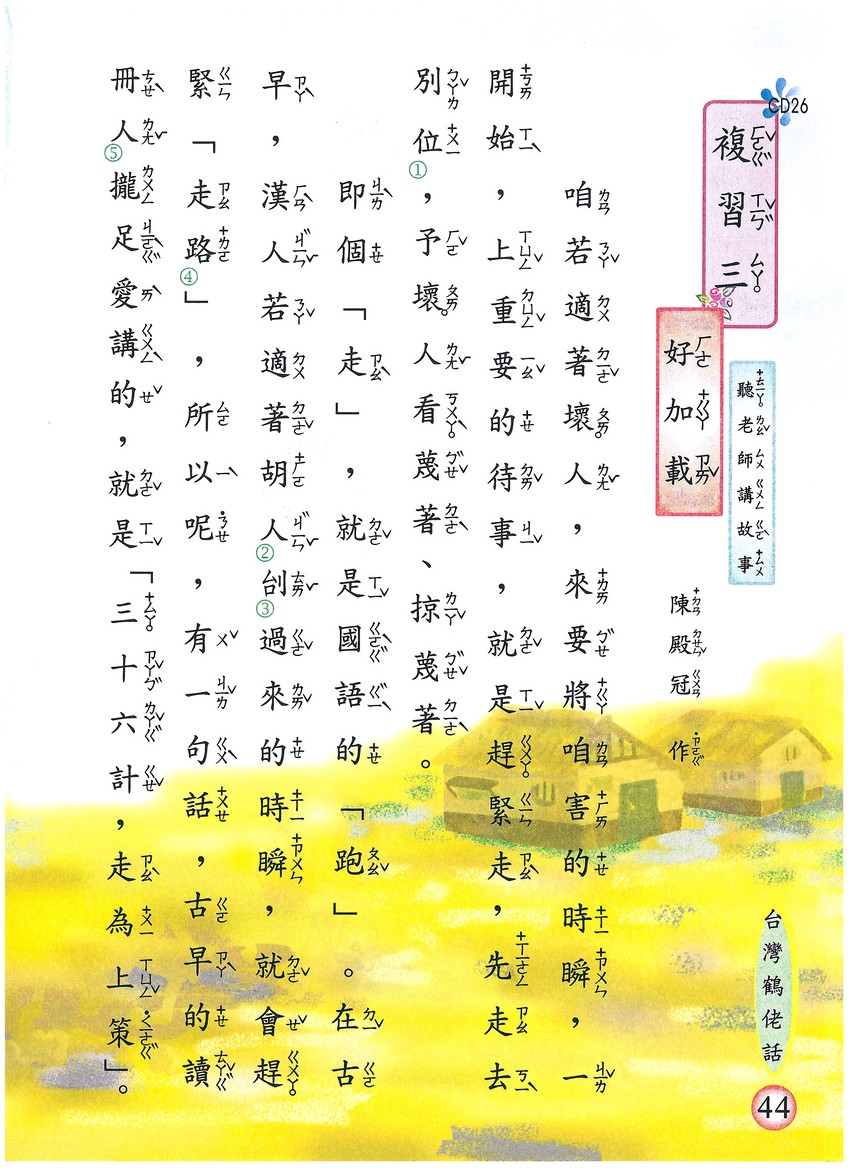 CD26
複習三
好加載
聽老師講故事
陳殿冠 作
咱若適著壞人，來要將咱害的時瞬，一
開始，上重要的待事，就是趕緊走，先走去
別位①，予壞人看蔑著、掠蔑著。
即個「走」，就是國語的「跑」。在古
早，漢人若適著胡人②刣③過來的時瞬，就會趕
緊「走路④」，所以呢，有一句話，古早的讀
冊人⑤攏足愛講的，就是「三十六計，走為上策」。
台灣鶴佬話
44